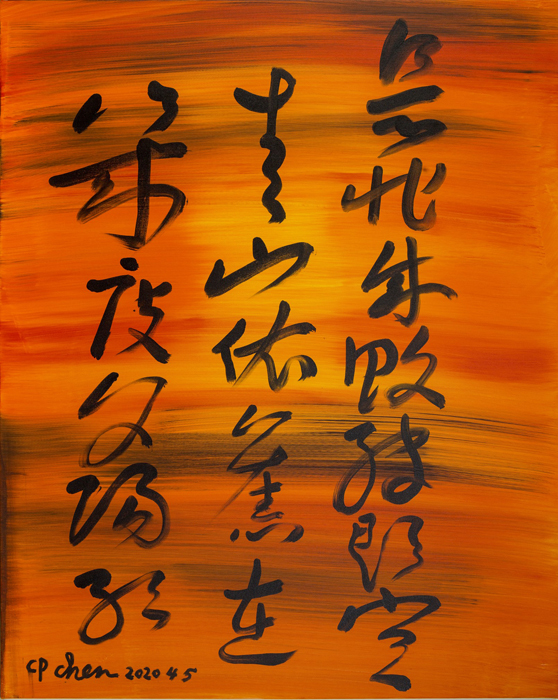 是非成敗轉頭空
青山依舊在
幾度夕陽紅
CP Chen 2020 4 5